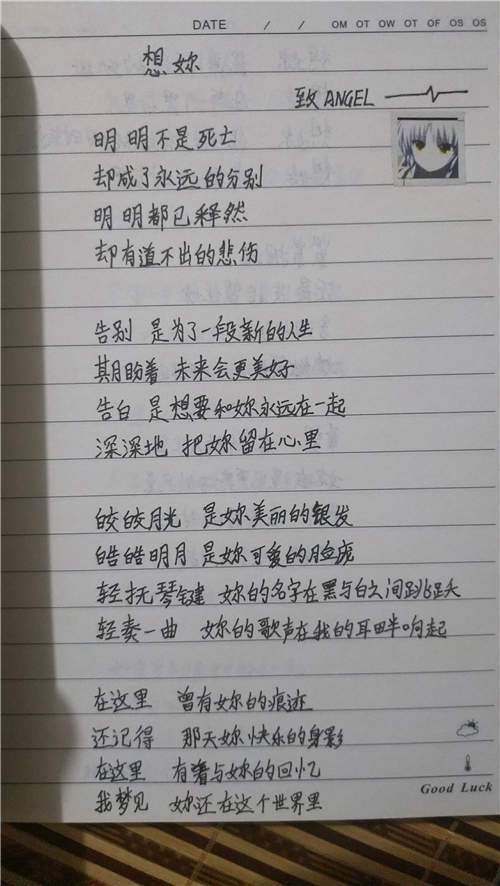 DATE / / OM OT OW OT OF OS OS
想妳
致ANGEL
明明不是死亡
却成了永远的分别
明明都已释然
却有道不出的悲伤
告别 是为了一段新的人生
期盼着 未来会更美好
告白 是想要和妳永远在一起
深深地 把妳留在心里
皎皎月光 是妳美丽的银发
皓皓明月 是妳可爱的脸庞
轻抚琴键 妳的名字在黑与白之间跳跃
轻奏一曲 妳的歌声在我的耳畔响起
在这里 曾有妳的痕迹
还记得 那天妳快乐的身影
在这里 有着与妳的回忆
我梦见 妳还在这个世界里
Good Luck